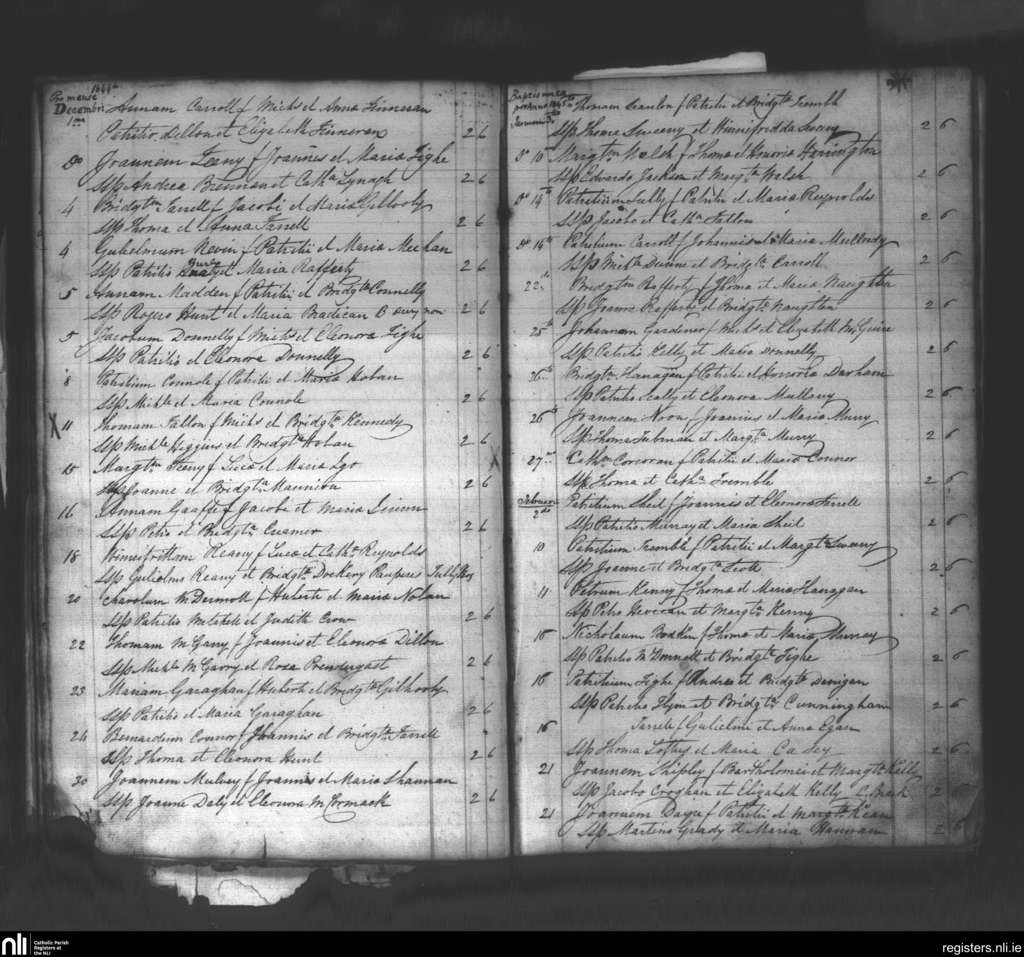 Pro mense Decembri 1844
1ma Annam Carroll f Michs et Anna Finneran
Patritio Dillon et Elizabeth Finneran 2 6
Do Joannem Feeny f Joannes et Maria Tighe
SSp Andrea Brennan et Catha Lynagh 2 6
4 Bridgtm Farrell f Jacobi et Maria Gillooly
SSp Thoma et Anna Farrell 2 6
4 Gulielmum Nevin f Patritii et Maria Meehan
SSp Patritio et Maria Rafferty 2 6
5 Annam Madden f Patritii et Bridgta Connelly
SSp Rogero Hunt et Maria Madican 2 6
5 Jacobum Donnelly f Michs et Eleonora Tighe
SSp Patritio et Eleonora Donnelly 2 6
8 Patritium Connole f Patritii et Maria Hoban
SSp Michle et Maria Connole 2 6
X 11 Thomam Fallon f Michs et Bridgta Kennedy
SSp Michle Higgins et Bridgta Hoban 2 6
15 Margtm Feeny f Luca et Maria Igo
SSp Joanne et Bridgta Mannion 2 6
16 Annam Gaffe f Jacobi et Maria
SSp Petro et Bridgta Cusmor 2 6
18 Winnefrittam Reany f Luca et Catha Reynolds
SSp Gulielmo Reany et Bridgta Dockery Pauperes
20 Charolum McDermott f Huberti et Maria Nolan
SSp Patritio Mitchell et Judith Crow 2 6
22 Thomam McGarry f Joannis et Eleonora Dillon
SSp Michle McGarry et Rosa Prendergast 2 6
23 Mariam Garaghan f Huberti et Bridgta Gilhooly
SSp Patritio et Maria Garaghan 2 6
24 Bernardum Connor f Joannis et Bridgta Farrell
SSp Thoma et Eleonora Hunt 2 6
30 Joannem Mulvey f Joannis et Maria Shannan
SSp Joanne Daly et Eleonora McCormack 2 6
Thomam Scanlon f Patritii et Bridgta Tremble
Januarii SSp Thoma Sweeny et Winnifredda 2 6
Do 10 Margtm Walsh f Thoma et Honoria Harrington
SSp Edwardo Jackson et Margta Walsh 2 6
Do 14th Patritium Lally f Patritii et Maria Reynolds
SSp Jacobo et Catha Fallon 2 6
Do 14th Patritium Carroll f Johannis et Maria Mullredy
SSp Michle Dunne et Bridgta Carroll 2 6
22 Bridgtm Rafferty f Thoma et Maria Naughten
SSp Joanne Rafferty et Bridgta Naughton 2 6
25th Johannem Gardener f Michs et Elizabeth McGuire
SSp Patritio Kelly et Maria Donnelly 2 6
26th Bridgtm Hanagan f Patritii et Honoria Durham
SSp Patritio Scally et Eleonora Mullany 2 6
26 Joannem Noon f Joannis et Maria Murry
SSp Thoma Tubman et Margta Murry 2 6
27 Cathm Corcoran f Patritii et Maria Connor
SSp Thoma et Catha Tremble 2 6
Februarii 2do Patritium Sheil f Joannis et Eleonora Farrell
SSp Patritio Murray et Maria Sheil 2 6
10 Patritium Tremble f Patritii et Margta Sweeny
SSp Joanne et Bridgta Scott 2 6
11 Petrum Kenny f Thoma et Maria Flanagan
SSp Petro Hevecan et Margta Kenny 2 6
16 Nicholaum f Thoma et Maria Murray
SSp Patritio McDonnell et Bridgta Tighe 2 6
16 Patritium Tighe f Andrea et Bridgta Denigan
SSp Patritio Flynn et Bridgta Cunningham 2 6
16 Farrell f Gulielmi et Anna Egan
SSp Thoma Loftus et Maria Casey 2 6
21 Joannem Shipley f Bartholomei et Margta Kelly
SSp Jacobo Croghan et Elizabeth Kelly 2 6
21 Joannem f Patritii et Margta Kean
SSp Martino Grady et Maria Hannan 2 6
nli Catholic Parish Registers at the NLI
registers.nli.ie